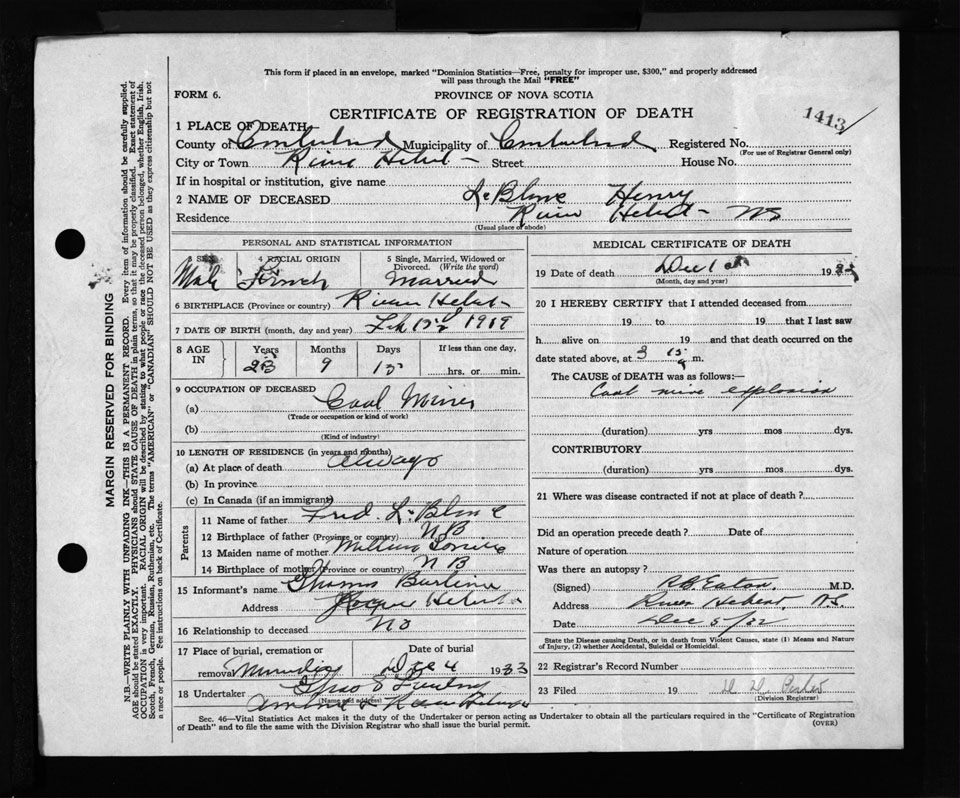 This form if placed in an envelope, marked "Dominion Statistics—Free, penalty for improper use, $300," and properly addressed
will pass through the Mail "FREE"
FORM 6.
PROVINCE OF NOVA SCOTIA
CERTIFICATE OF REGISTRATION OF DEATH
1413
1 PLACE OF DEATH
County of Cumberland Municipality of Cumberland Registered No.
(For use of Registrar General only)
City or Town River Hebert Street House No.
If in hospital or institution, give name
2 NAME OF DECEASED LeBlanc Henry
Residence River Hebert NS
(Usual place of abode)
PERSONAL AND STATISTICAL INFORMATION
3 SEX 4 RACIAL ORIGIN 5 Single, Married, Widowed or
Divorced. (Write the word)
Male French Married
6 BIRTHPLACE (Province or country) River Hebert
7 DATE OF BIRTH (month, day and year) Feb 1919
8 AGE IN Years Months Days If less than one day,
9 15 hrs. or min.
9 OCCUPATION OF DECEASED
(a) Coal Miner
(Trade or occupation or kind of work)
(b)
(Kind of industry)
10 LENGTH OF RESIDENCE (in years and months)
(a) At place of death always
(b) In province
(c) In Canada (if an immigrant)
Parents
11 Name of father Fred. LeBlanc
12 Birthplace of father (Province or country) NB
13 Maiden name of mother
14 Birthplace of mother (Province or country) NB
15 Informant's name Thomas
Address Hebert
16 Relationship to deceased No
17 Place of burial, cremation or Date of burial
removal Dec 4 1933
18 Undertaker
(Name and address)
River Hebert
MEDICAL CERTIFICATE OF DEATH
19 Date of death Dec 1 193
(Month, day and year)
20 I HEREBY CERTIFY that I attended deceased from
19 to 19 that I last saw
h alive on 19 and that death occurred on the
date stated above, at 3 15 m.
The CAUSE OF DEATH was as follows:—
Coal mine explosion
(duration) yrs mos dys.
CONTRIBUTORY
(duration) yrs mos dys.
21 Where was disease contracted if not at place of death?
Did an operation precede death? Date of
Nature of operation
Was there an autopsy?
(Signed) R.B. Eaton M.D.
Address River Hebert, N.S.
Date Dec 5/32
State the Disease causing Death, or in death from Violent Causes, state (1) Means and Nature
of Injury, (2) whether Accidental, Suicidal or Homicidal.
22 Registrar's Record Number
23 Filed 19
(Division Registrar)
Sec. 46—Vital Statistics Act makes it the duty of the Undertaker or person acting as Undertaker to obtain all the particulars required in the "Certificate of Registration
of Death" and to file the same with the Division Registrar who shall issue the burial permit.
(OVER)
MARGIN RESERVED FOR BINDING
N.B.—WRITE PLAINLY WITH UNFADING INK—THIS IS A PERMANENT RECORD. Every item of information should be carefully supplied.
AGE should be stated EXACTLY. PHYSICIANS should STATE CAUSE OF DEATH in plain terms, so that it may be properly classified. Exact statement of
OCCUPATION is very important. RACIAL ORIGIN will be described by stating to what people or race the deceased person belonged, whether English, Irish,
Scotch, French, German, Russian, Ruthenian, etc. The terms "AMERICAN" or "CANADIAN" SHOULD NOT BE USED as they express citizenship but not
a race or people. See instructions on back of Certificate.